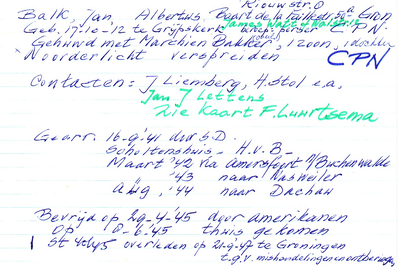 Riouwstr. 0
Balk, Jan Albertus, Baart de la Faillestr. 5a Gron.
Geb. 17-10-'12 te Grijpskerk C.P.N.
Gehuwd met Marchien Bakker, 1 zoon, 1 dochter
Noorderlicht verspreiden CPN
Contacten: J Liemberg, H. Stol e.a.
Jan J Lettens
Zie Kaart F. Luurtsema
Gearr. 16-9-'41 door S.D.
Scholtenshuis - H.v.B -
Maart '42 via Amersfoort n/Buchenwalde
'43 naar Natzweiler
Aug, '44 naar Dachau
Bevrijd op 29-4-'45 door Amerikanen
Op 8-6-'45 thuis gekomen
overleden op te Groningen
t.g.v. mishandelingen en ontberingen